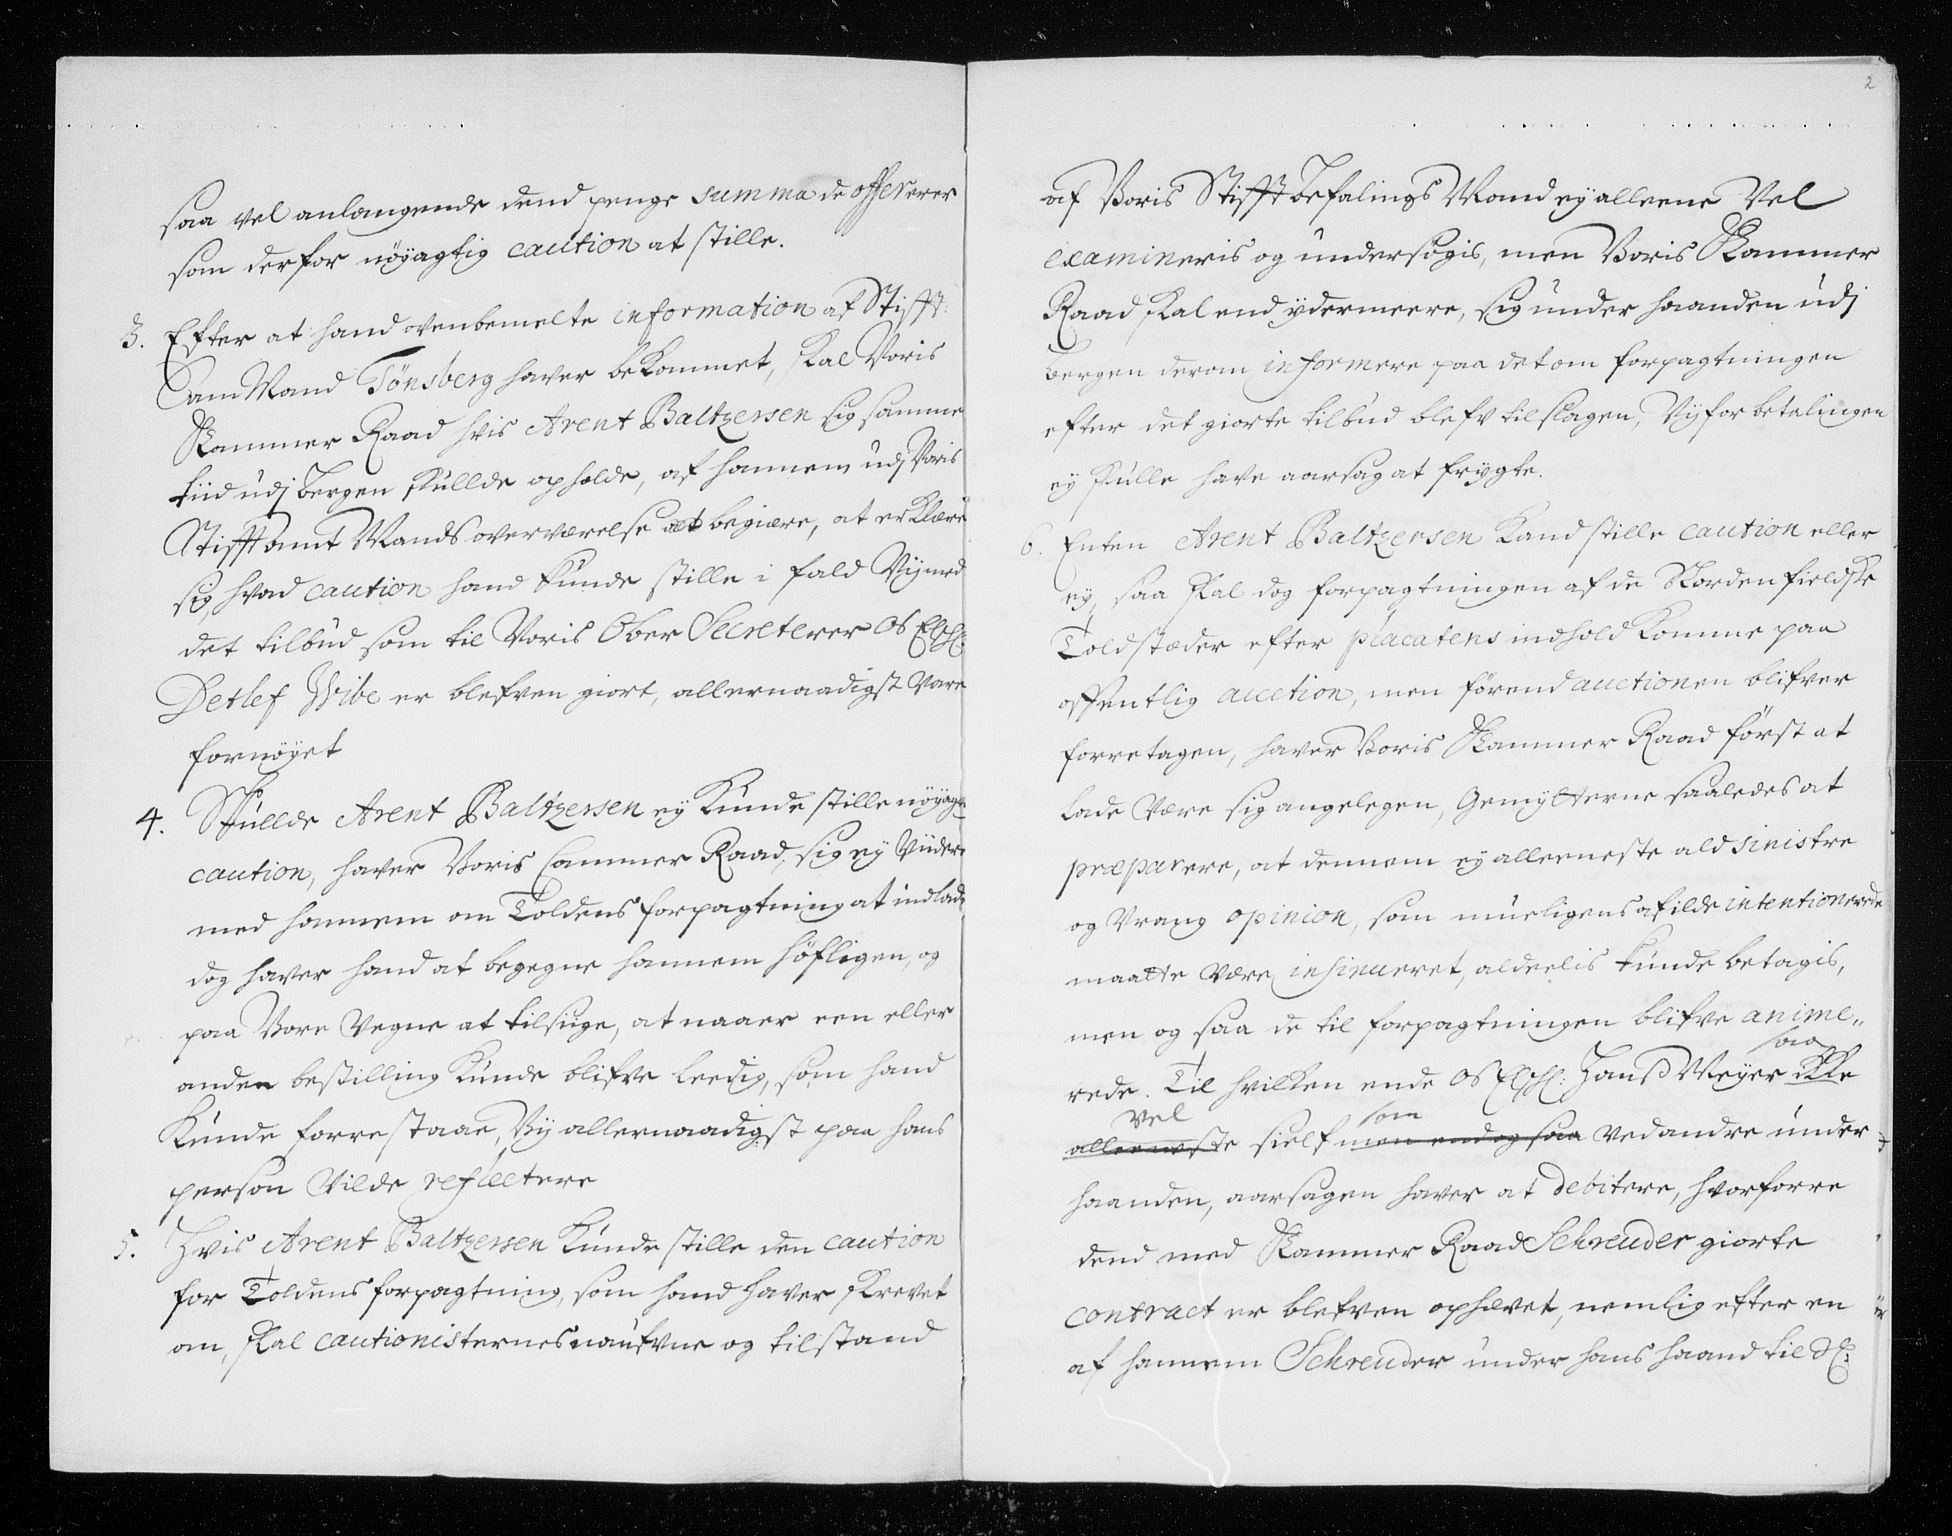 saa vel anlangende dend penge summa de offererer
som derfor nöyagtig caution at stille.
3. Efter at hand ovenbemelte information af Stifft:
Amt Mand Tönsberg haver bekommet, skal Voris
Kammer Raad hvis Arent Baltzersen sig samme
tiid udj Bergen skullde opholde, af hannem udj Voris
Stifft amt Mands overværelse at begiære, at erklære
sig, hvad caution hand kunde stille i fald Vij med
det tilbud som til Voris Ober Secreterer Os Elschl:
Detlef Wibe er blefven giort, allernaadigst vare
fornöyet
4. Skullde Arent Baltzersen ey kunde stille nöyagtig
caution, haver Voris Cammer Raad, sig ey viidere
med hannem om Toldens forpagtning at indlade,
dog haver hand at begegne hannem höfligen, og
paa Vore Vegne at tilsige, at naaer een eller
anden bestilling kunde blifve leedig, som hand
kunde forrestaae, Vij allernaadigst paa hans
person vilde reflectere
5. Hvis Arent Baltzersen kunde stille den caution
for Toldens forpagtning, som hand haver skrevet
om, skal cautionisternes naufvne og tilstand
2
af Voris Stifft befalings Mand ey alleene vel
examineris og undersögis, men Voris Kammer
Raad skal end ydermeere, sig under haanden udj
Bergen derom informere paa det om forpagtningen
efter det giorte tilbud blefv tilslagen, Vij for betalingen
ey skulle have aarsag at frygte.
6. Enten Arent Baltzersen kand stille caution eller
ey, saa skal dog forpagtningen af de Nordenfieldske
Toldstæder efter placatens indhold komme paa
offentlig auction, men förend auctionen blifver
forretagen, haver Voris Kammer Raad först at
lade være sig angelegen, Gemytterne saaledes at
præparere, at dennem ey alleeneste ald sinistre
og vrang opinion, som mueligens af ilde intentionerede
maatte være insinueret, aldeelis kunde betagis,
men og saa de til forpagtningen blifve anime„
saa
rede. Til hvilken ende Os Elschl: Hanß Meyer ikke
vel som
alleeneste sielf men end og saa ved andre under
haanden, aarsagen haver at debitere, hvorforre
dend med Kammer Raad Schreuder giorte
contract er blefven ophævet, nemlig efter en
af hannem Schreuder under hans haand til